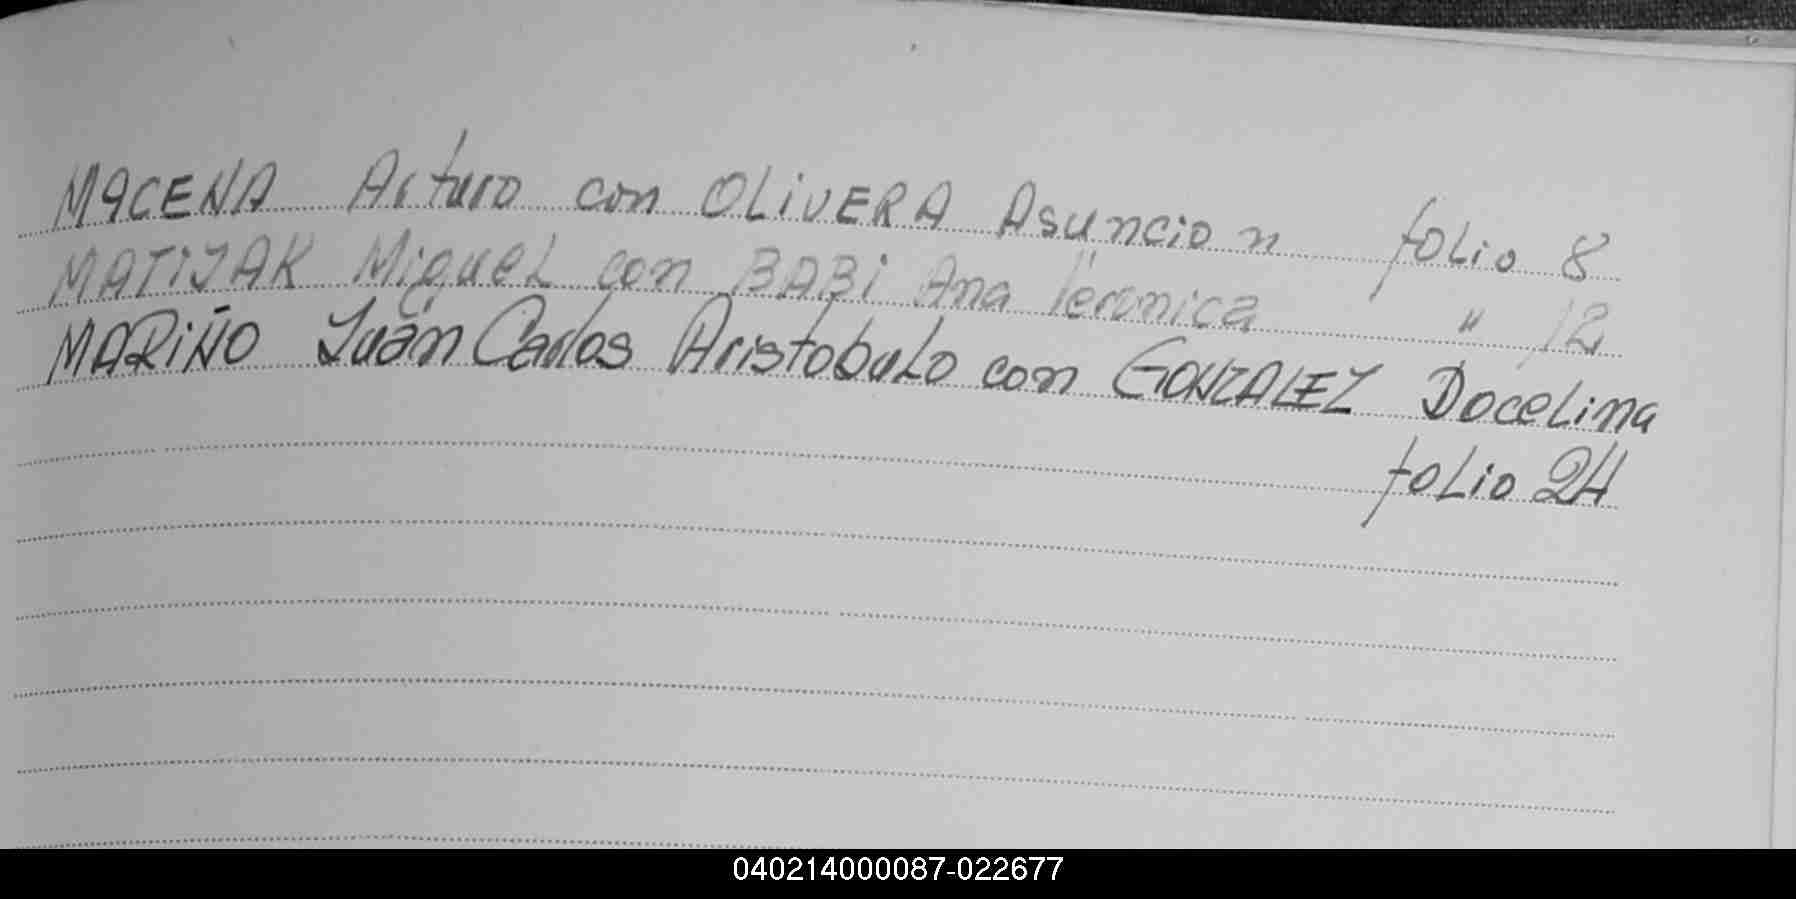 MACENA Arturo con OLIVERA Asuncion folio 8
MATIJAK Miguel con BABI Ana Veronica " 12
MARIÑO Juan Carlos Aristobulo con GONZALEZ Docelina
folio 24
040214000087-022677